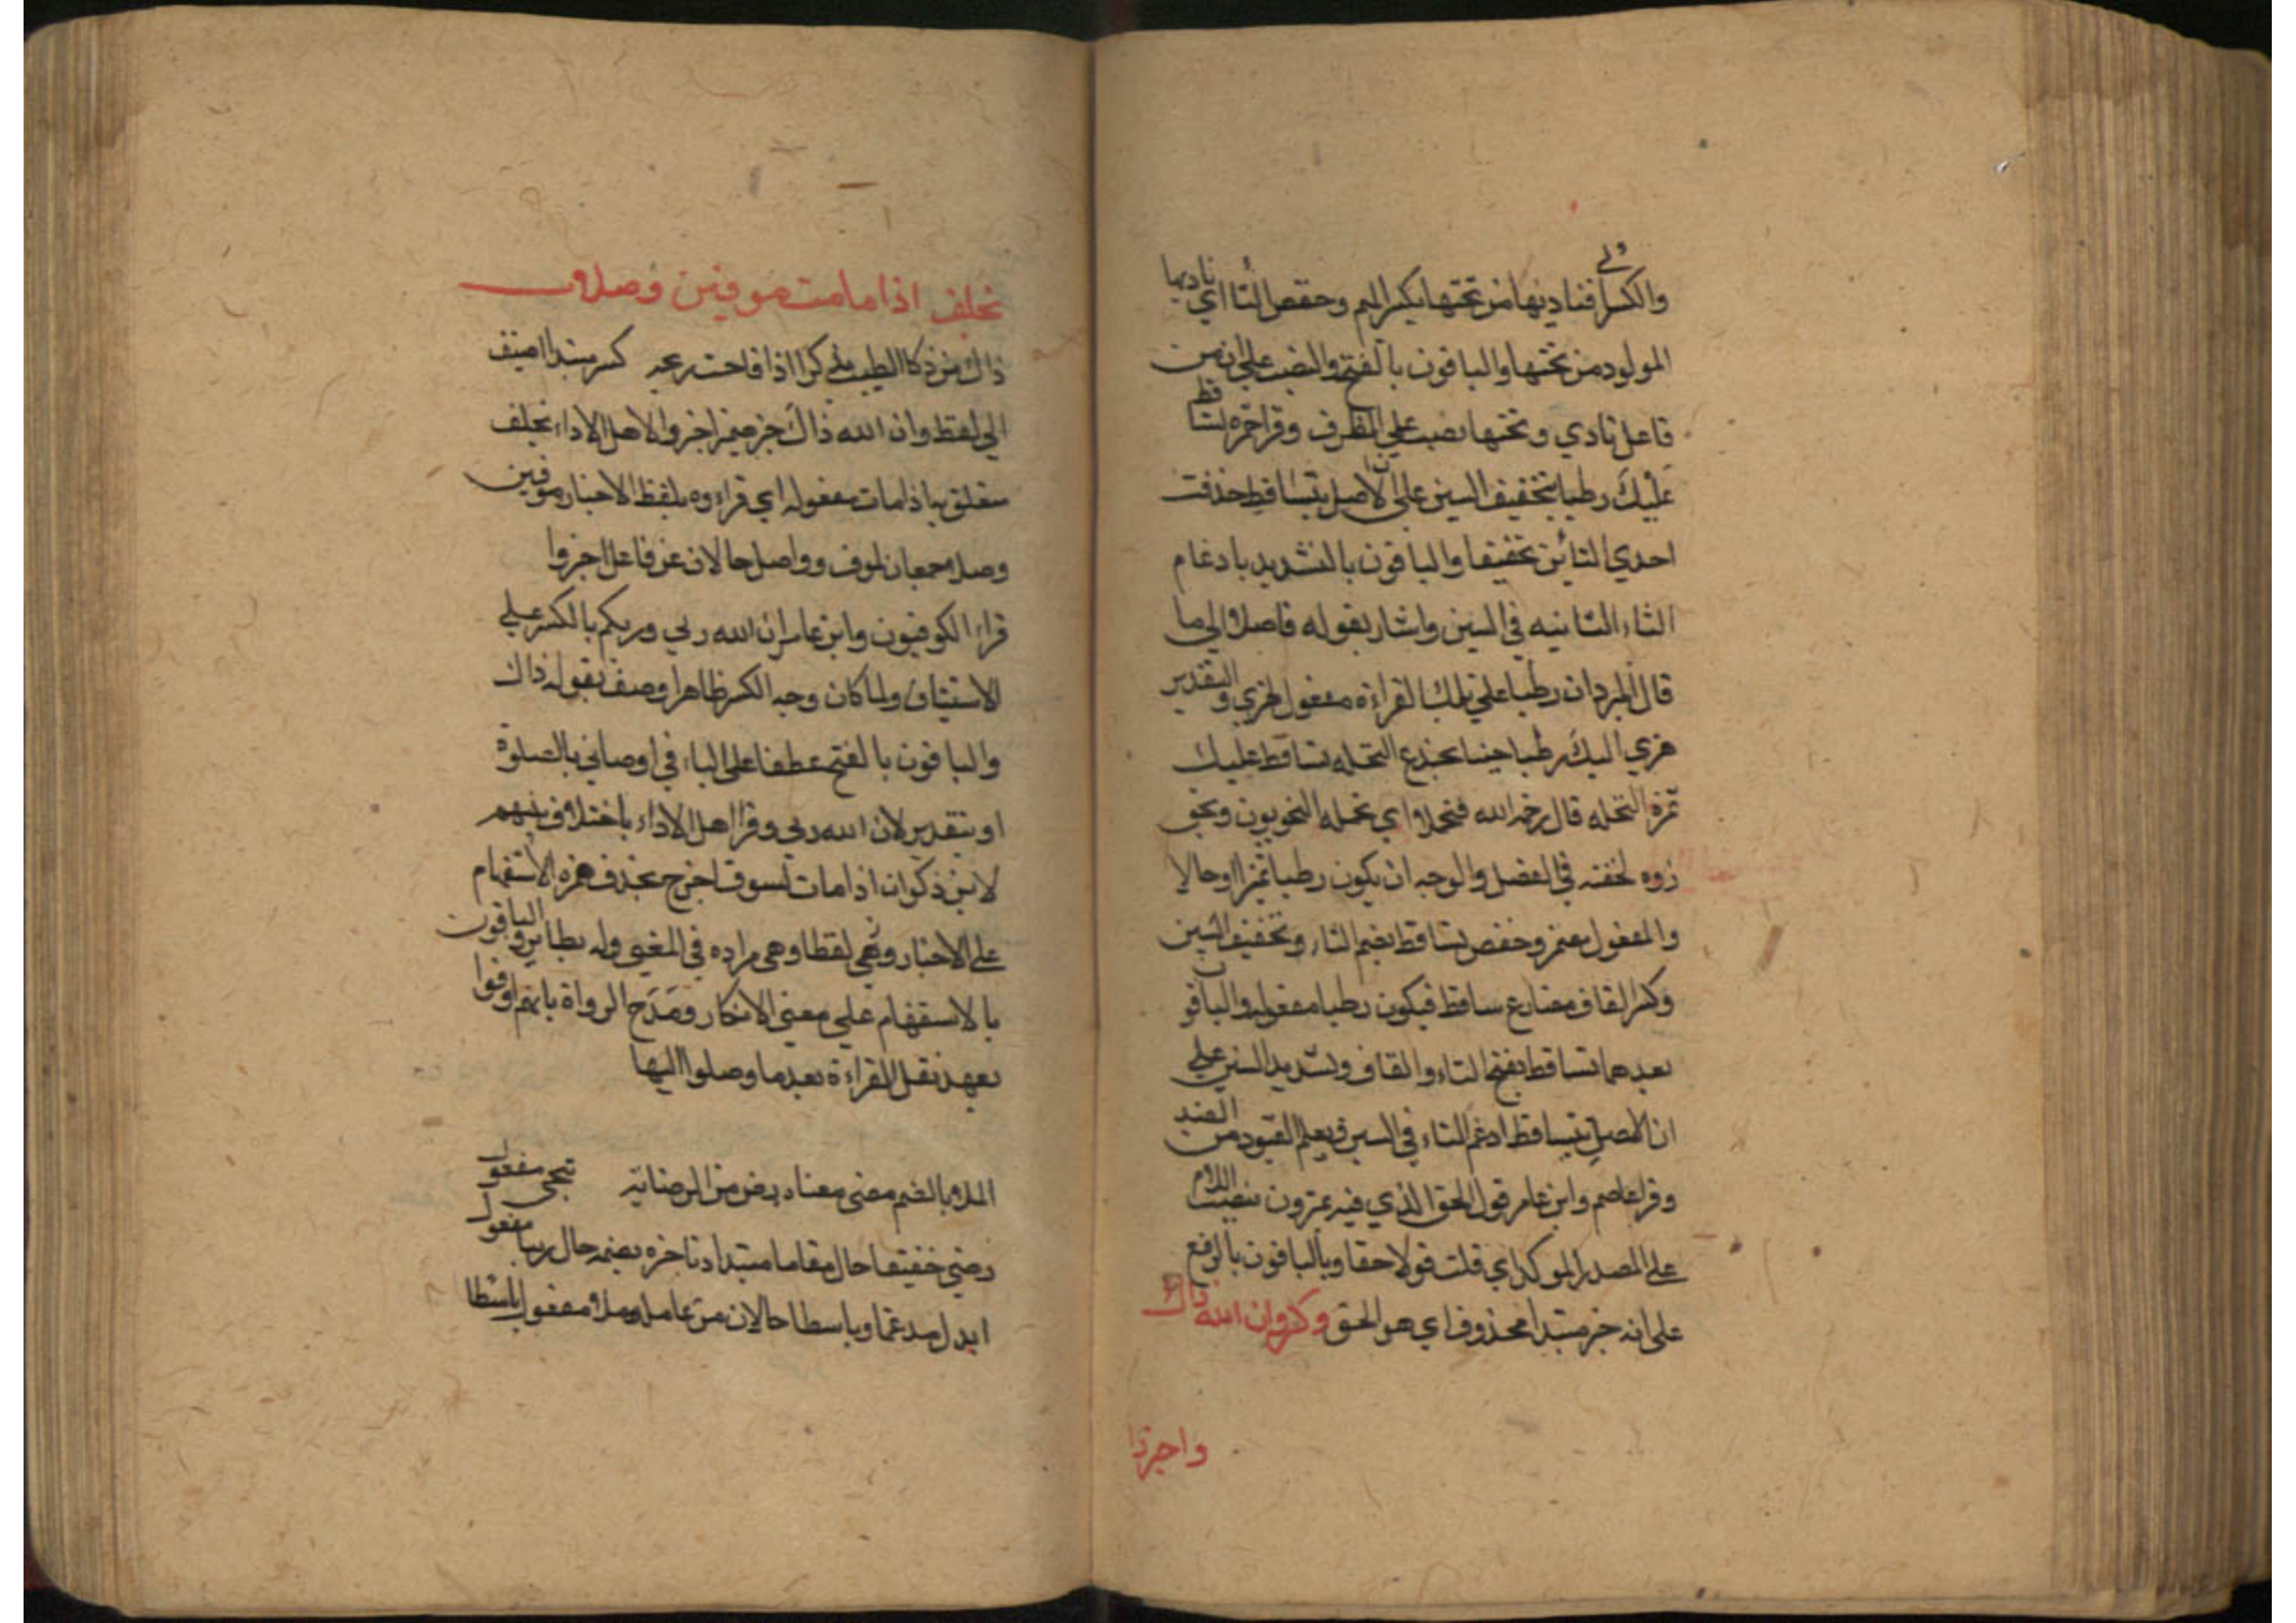 والكسر في فناديها من تحتها بكسر الميم وخفض التا اي ناديها
المولود من تحتها والباقون بالفتح والنصب علي ان من
فاعل نادي وتحتها نصب علي الظرف وقرا حمزه تساقط
عَلَيْكَ رطبا بتخفيف السين علي ان الاصل تتساقط حذفت
احدي التائين تخفيفا والباقون بالتشديد بادغام
التاء الثانيه في السين واشار بقوله فاصلا الي ما
قال المبرد ان رطبا علي تلك القراءة مفعول لهزي والتقدير
هزي اليك رطبا جنيا بجذع النخله تساقط عليك
ثمرة النخله قال رحمه الله فتحملا اي تحمله النحويون
لخفته في الفصل والوجه ان يكون رطبا تميزا او حالا
والمفعول وحفص تساقط بضم التاء وتخفيف السين
وكسر القاف مضارع ساقط فيكون رطبا مفعوله والباقون
بعدهما تساقط بفتح التاء والقاف وتشديد السين علي
ان الاصل تتساقط ادغم التاء في السين فيعلم القيود من الضد
وقرا عاصم وابن عامر قول الحق الذي فيه يمترون بنصب اللام
علي المصدر الموكد اي قلت قولا حقا والباقون بالرفع
علي انه خبر مبتدا محذوف اي هو الحق وكسر وان الله ذاك
واخبروا
بخلف اذا ما مت موفين وصلا
ذاك من ذكا الطيب كسر مبتدا اضيف
الي لفظ وان الله ذاك خبر ضمير اخبروا لاهل الاداء بخلف
متعلق به اذا مات مفعوله اي قراءوه بلفظ الاخبار موفين
وصلا جمعان لموف وواصل حالان عن فاعل اخبروا
قراء الكوفيون وابن عامر ان الله ربي وربكم بالكسر علي
الاستيناف ولما كان وجه الكسر ظاهرا وصف بقوله ذاك
والباقون بالفتح عطفا علي الياء في اوصاني بالصلوة
او بتقدير لان الله ربي وقرا اهل الاداء باختلاف بينهم
لابن ذكوان اذا مات لسوف اخرج بحذف همزه الاستفهام
علي الاخبار وهي لفظا وهي مراده في المعني وله نظاير والباقون
بالاستفهام علي معني الانكار ومَدَح الرواة بانهم اوفوا
بعهد نقل القراءة بعد ما وصلوا اليها
الملا بالضم مضي معناه رض من الرضاية تنجي مفعول
رضي خفيفا حال مقاما مبتدا دنا خبره بضمه حال ريا مفعول
ابدل مدغما وباسطا حالان من عامله وملا مفعول باسطا